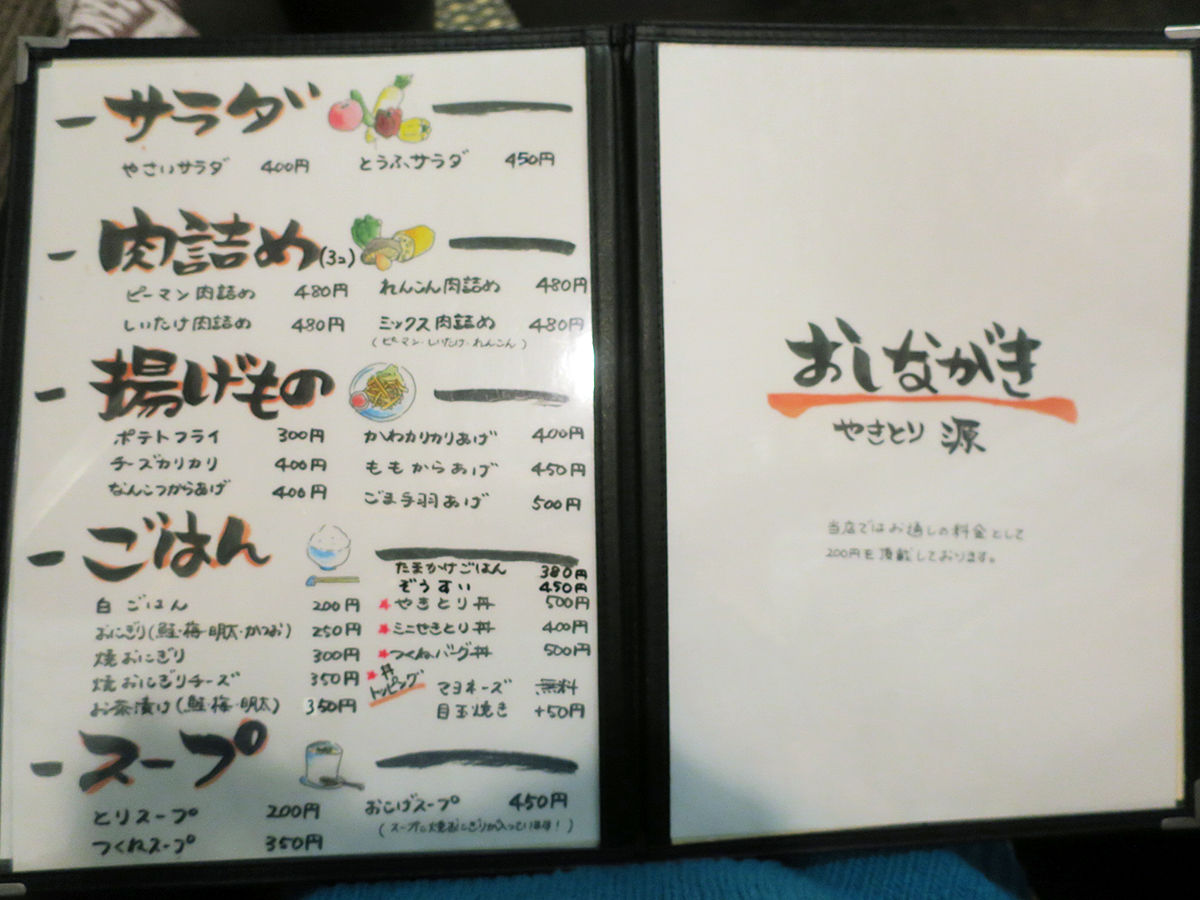 サラダ
やさいサラダ 400円 とうふサラダ 450円
肉詰め(3コ)
ピーマン肉詰め 480円 れんこん肉詰め 480円
しいたけ肉詰め 480円 ミックス肉詰め 480円
(ピーマン・しいたけ・れんこん)
揚げもの
ポテトフライ 300円 かわカリカリあげ 400円
チーズカリカリ 400円 ももからあげ 450円
なんこつからあげ 400円 ごま手羽あげ 500円
ごはん
たまかけごはん 380円
ぞうすい 450円
白ごはん 200円 ★やきとり丼 500円
おにぎり(鮭・梅・明太・かつお) 250円 ★ミニやきとり丼 400円
焼おにぎり 300円 ★つくねバーグ丼 500円
焼おにぎりチーズ 350円 ★丼トッピング マヨネーズ 無料
お茶漬け(鮭・梅・明太) 350円 目玉焼き +50円
スープ
とりスープ 200円 おこげスープ 450円
(スープに焼おにぎりが入っています!)
つくねスープ 350円
おしながき
やきとり 源
当店ではお通しの料金として
200円を頂戴しております。